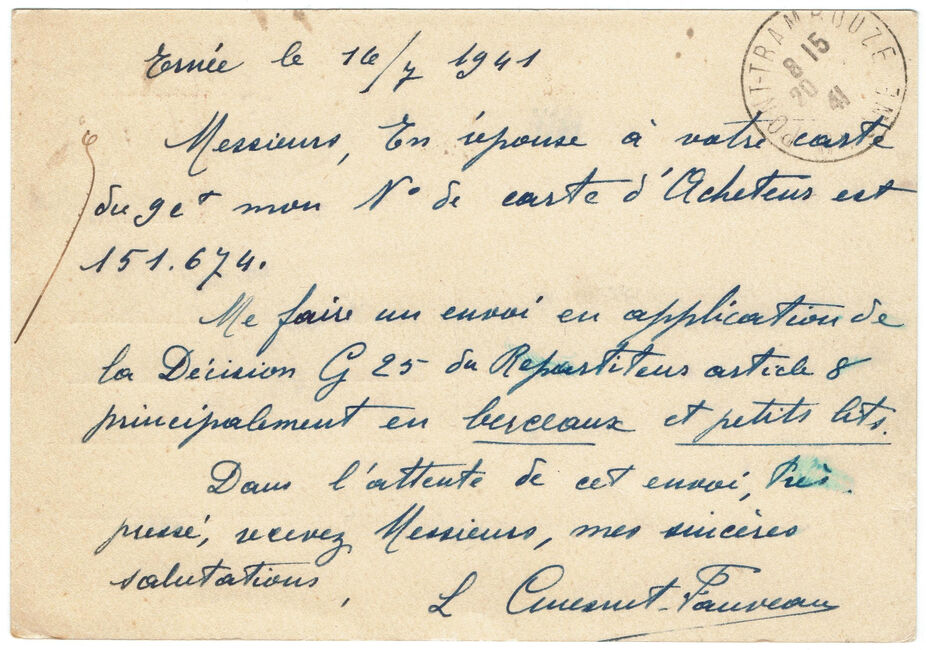 Ernée le 16/7 1941
PONT-TRAMBOUZE
8 15
20
41
RHONE
Messieurs, En réponse à votre carte
du 9 ct mon N° de carte d'Acheteur est
151.674.
Me faire un envoi en application de
la Décision G 25 du Répartiteur article 8
principalement en berceaux et petits lits.
Dans l'attente de cet envoi, très
pressé, recevez Messieurs, mes sincères
salutations,
L Fauveau